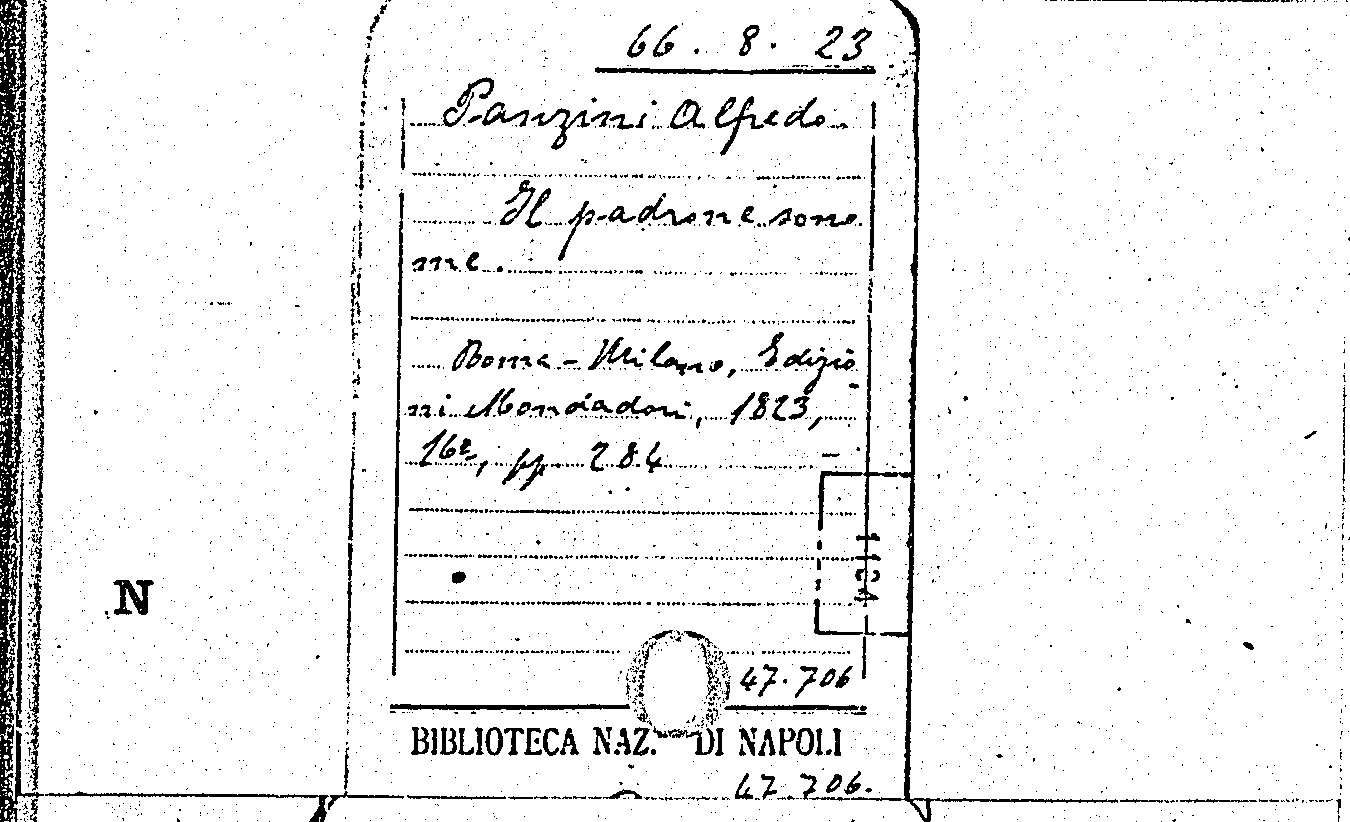 66. 8. 23
Panzini Alfredo.
Il padrone sono
me.
Roma - Milano, Edizio
ni Mondadori, 1823,
16º, pp 284
N
47.706
BIBLIOTECA NAZ. DI NAPOLI
47.706.